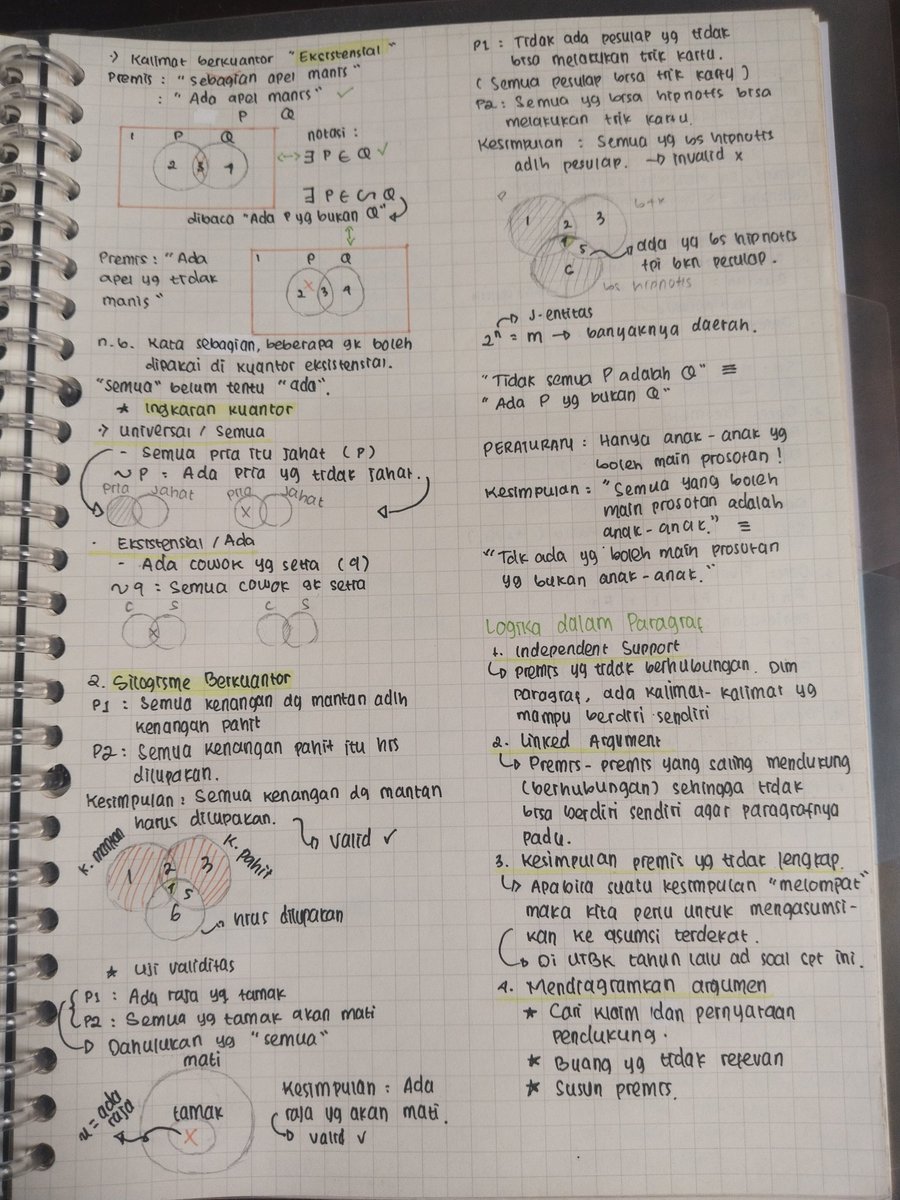 -> Kalimat berkuantor "Eksistensial"
Premis : "Sebagian apel manis"
: "Ada apel manis" ✓
P Q
1 P Q
2 3 4
notasi :
<-> ∃ P ∈ Q ✓
∃ P ∈ ~ Q
dibaca "Ada P yg bukan Q"
Premis : "Ada
apel yg tidak
manis"
1 P Q
2 x 3 4
n.b. Kata sebagian, beberapa gk boleh
dipakai di kuantor eksistensial.
"Semua" belum tentu "ada".
* Ingkaran kuantor
-> Universal / Semua
- Semua pria itu jahat (p)
~ p = Ada pria yg tidak jahat.
Pria Jahat Pria Jahat
x
· Eksistensial / Ada
- Ada cowok yg setia (q)
~ q : Semua cowok gk setia
C S C S
x
2. Silogisme Berkuantor
P1 : Semua kenangan dg mantan adlh
kenangan pahit
P2 : Semua kenangan pahit itu hrs
dilupakan.
Kesimpulan : Semua kenangan dg mantan
harus dilupakan.
valid ✓
K. mantan K. pahit
1 2 3
4 5
6
hrus dilupakan
* Uji validitas
P1 : Ada raja yg tamak
P2 : Semua yg tamak akan mati
Dahulukan yg "semua"
mati
tamak
x
x = ada
raja
Kesimpulan : Ada
raja yg akan mati.
valid ✓
P1 : Tidak ada pesulap yg tidak
bisa melakukan trik kartu.
(Semua pesulap bisa trik kartu)
P2 : Semua yg bisa hipnotis bisa
melakukan trik kartu.
Kesimpulan : Semua yg bs hipnotis
adlh pesulap. -> invalid x
P
btk
1 2 3
4 5
6
bs hipnotis
ada yg bs hipnotis
tpi bkn pesulap.
J-entitas
2ⁿ = m -> banyaknya daerah.
"Tidak semua P adalah Q" ≡
"Ada P yg bukan Q"
PERATURAN : Hanya anak-anak yg
boleh main prosotan !
Kesimpulan : "Semua yang boleh
main prosotan adalah
anak-anak." ≡
"Tdk ada yg boleh main prosotan
yg bukan anak-anak."
Logika dalam Paragraf
1. Independent Support
premis yg tidak berhubungan. Dlm
paragraf, ada kalimat-kalimat yg
mampu berdiri sendiri
2. Linked Argument
Premis-premis yang saling mendukung
(berhubungan) sehingga tidak
bisa berdiri sendiri agar paragrafnya
padu.
3. Kesimpulan premis yg tidak lengkap.
Apabila suatu kesimpulan "melompat"
maka kita perlu untuk mengasumsi-
kan ke asumsi terdekat.
Di UTBK tahun lalu ad soal cpt ini.
4. Mendiagramkan argumen
* Cari klaim dan pernyataan
pendukung.
* Buang yg tidak relevan
* Susun premis.